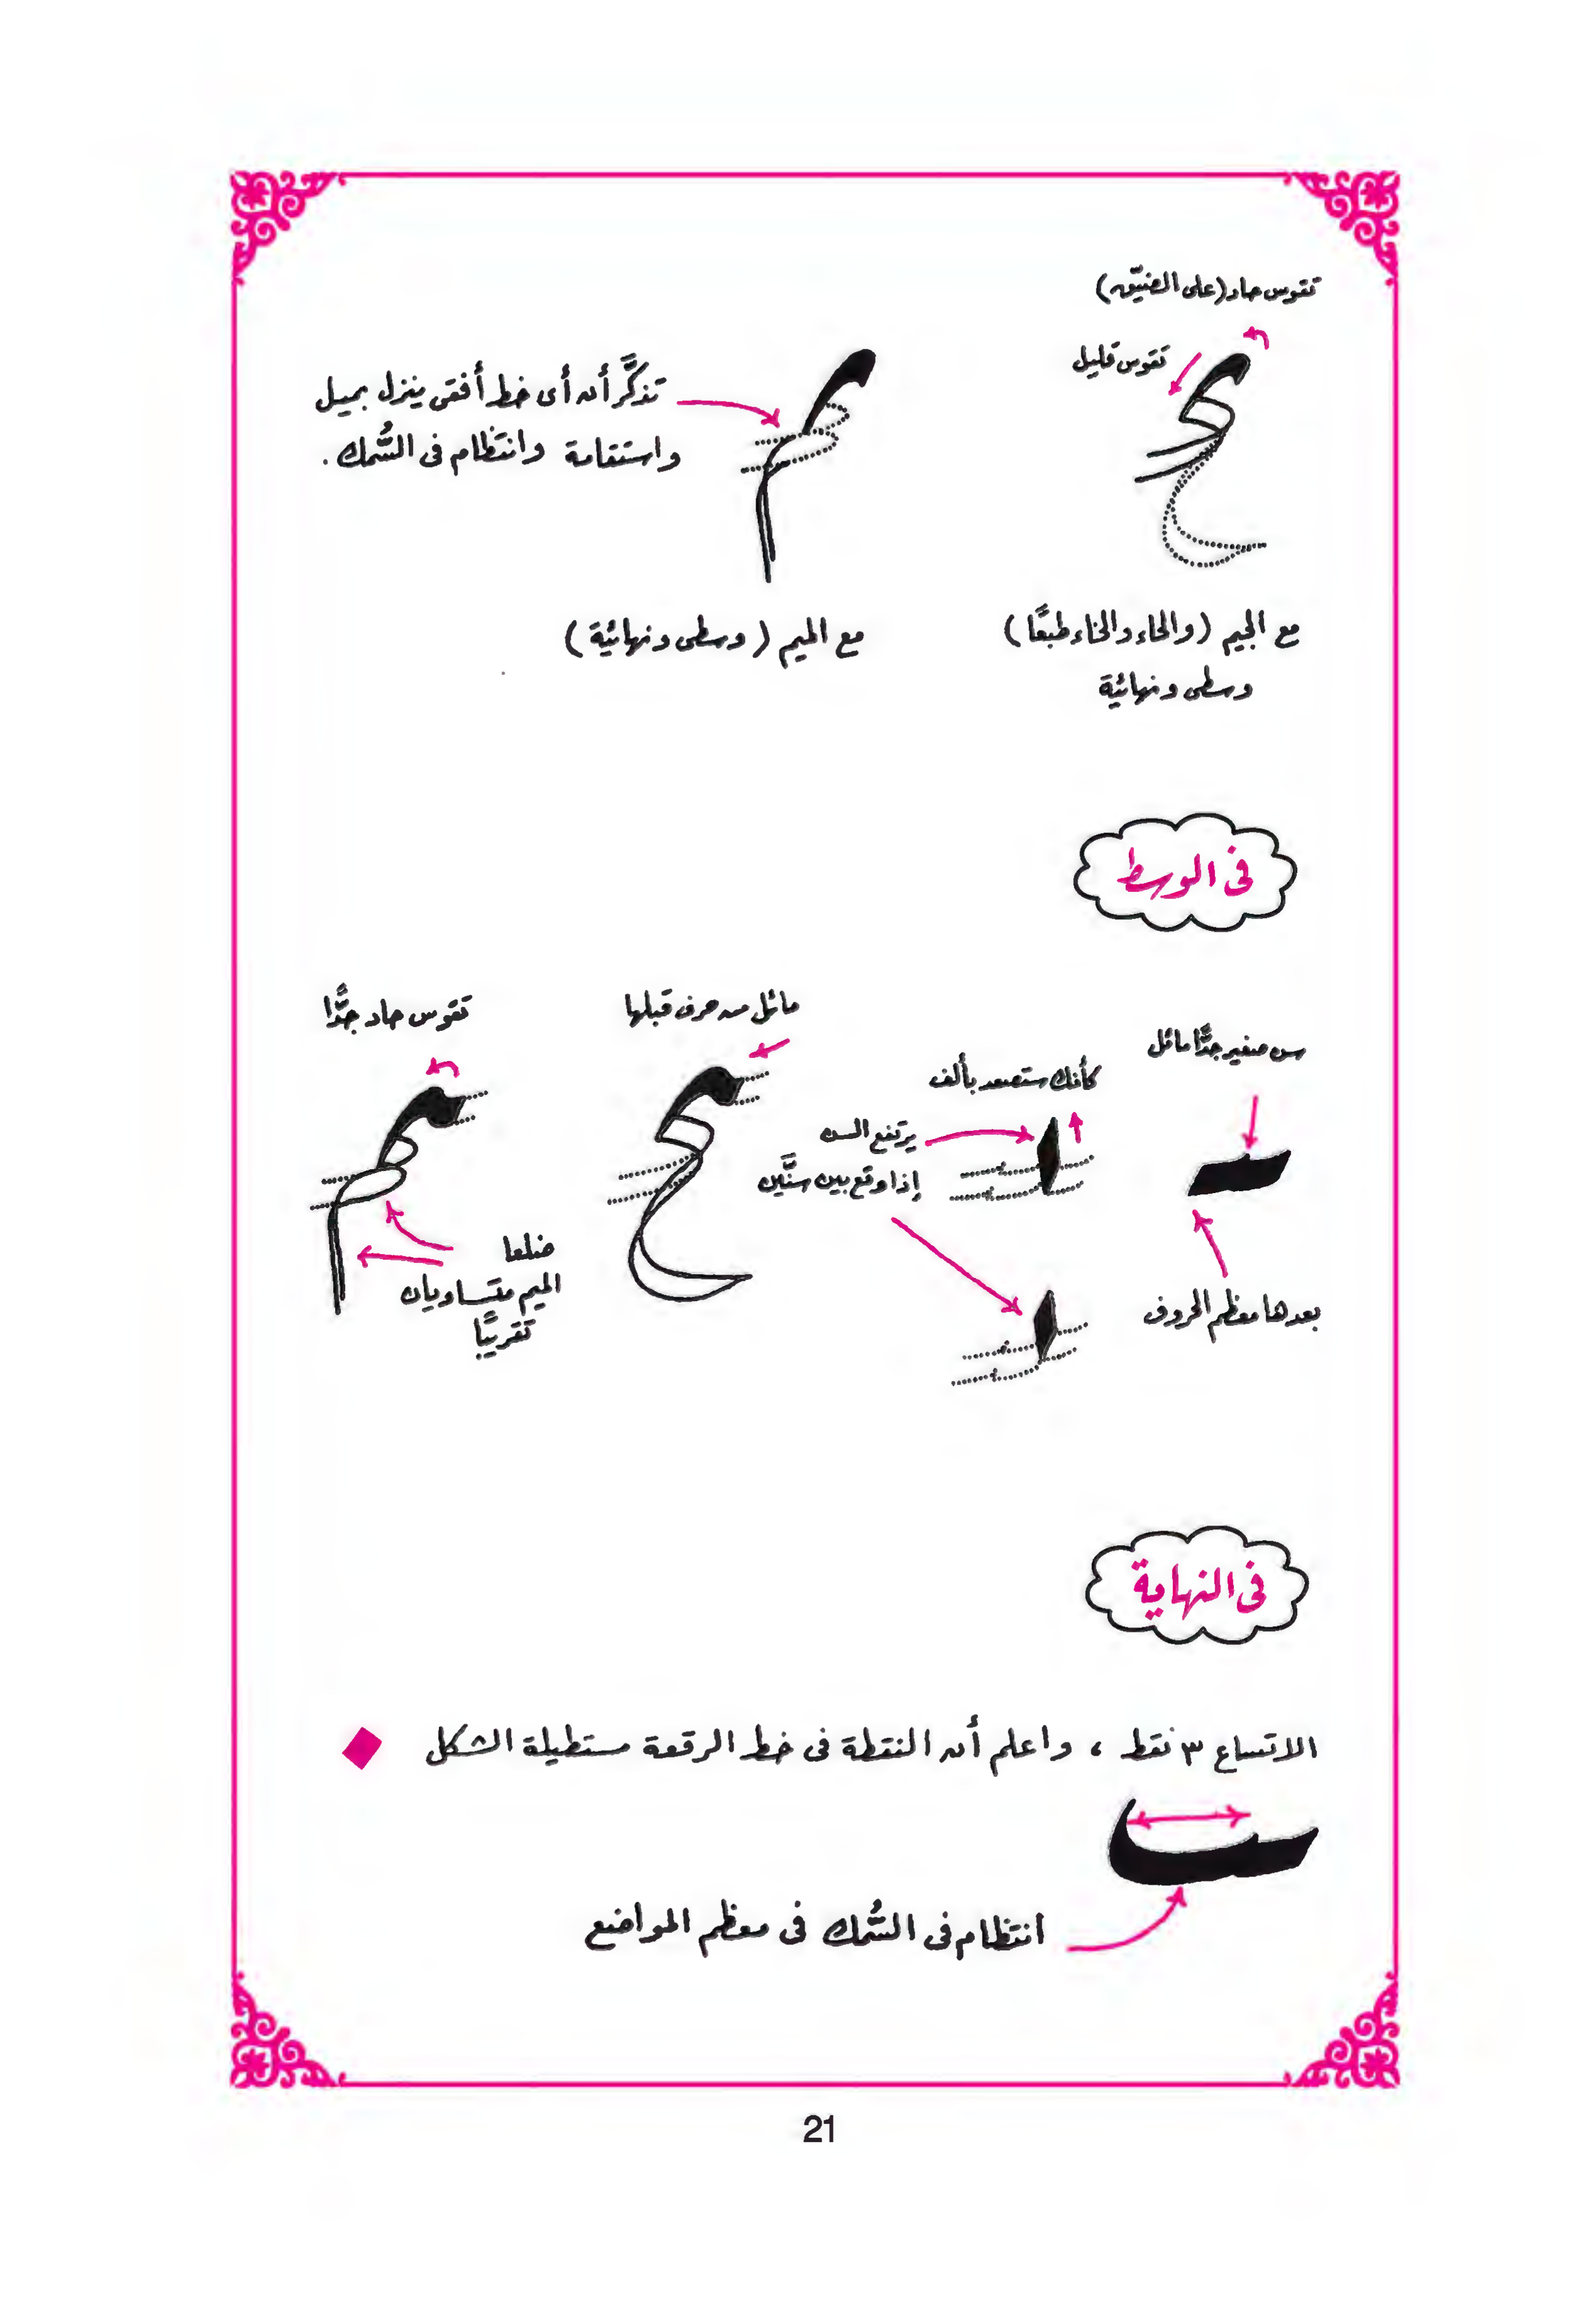 تقوس حاد (على الضيّق)
تقوس قليل
تذكَّر أن أى خط أفقى ينزل بميل
واستقامة وانتظام فى السُّمك .
مع الجيم (والحاء والخاء طبعًا)
وسطى ونهائية
مع الميم (وسطى ونهائية)
فى الوسط
سن صغير جدًّا مائل
بعدها معظم الحروف
كأنك ستصعد بألف
يرتفع السن
إذا وقع بين سنَّين
مائل من حرف قبلها
تقوس حاد جدًّا
ضلعا
الميم متساويان
تقريبًا
فى النهاية
الاتساع ٣ نقط ، واعلم أن النقطة فى خط الرقعة مستطيلة الشكل
انتظام فى السُّمك فى معظم المواضع
21